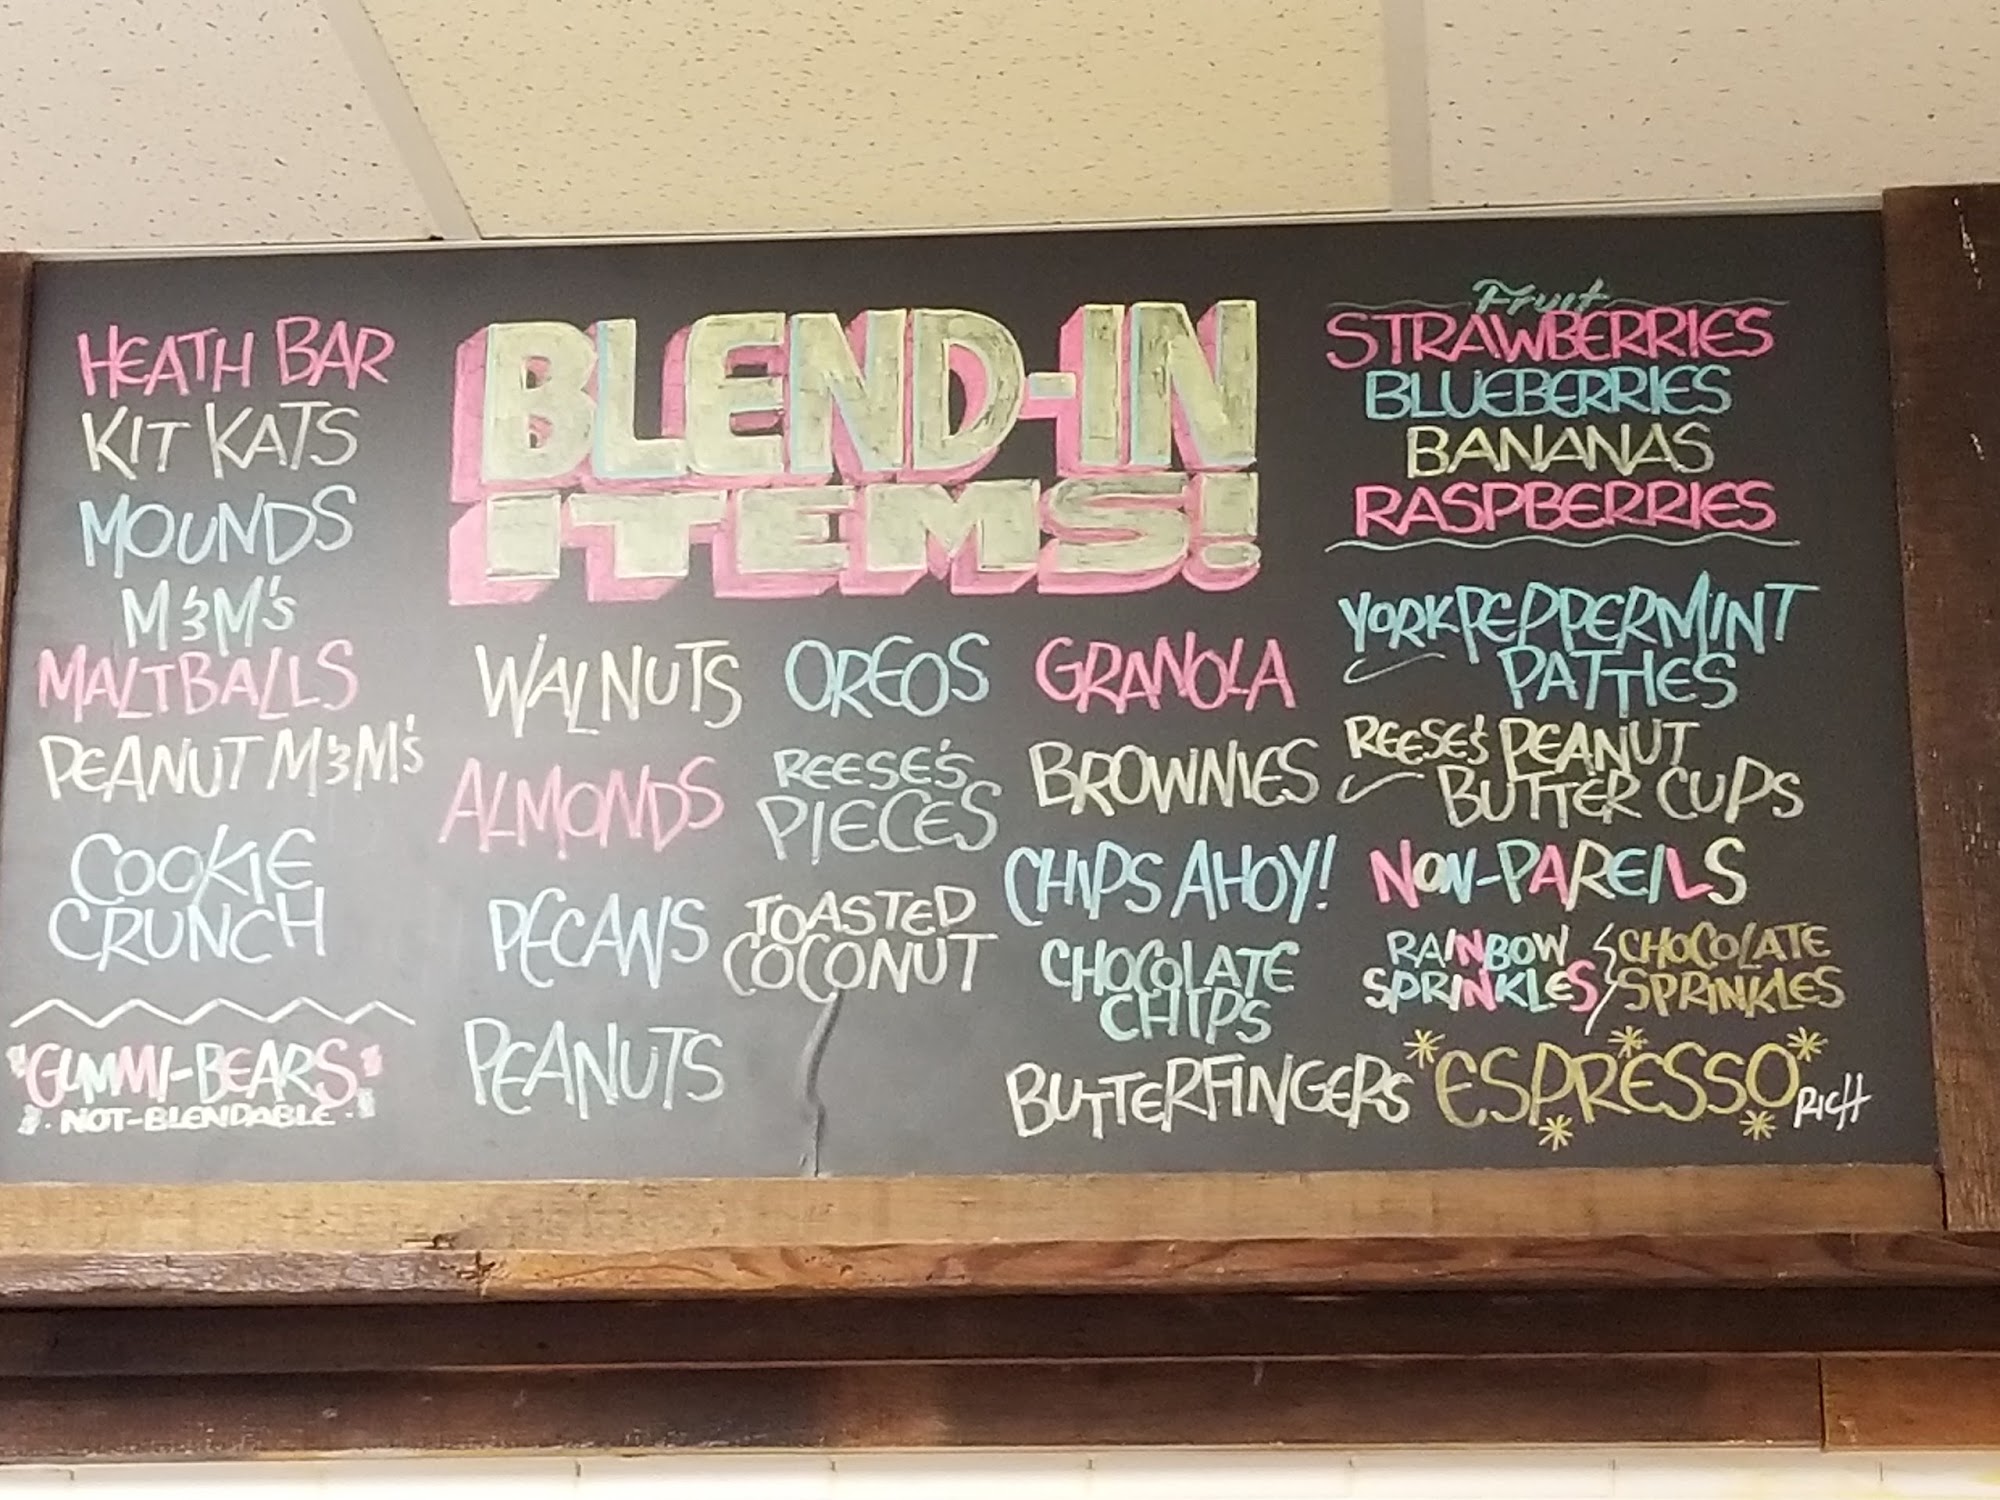 BLEND-IN
ITEMS!
HEATH BAR
KIT KATS
MOUNDS
M&M's
MALTBALLS
PEANUT M&M's
COOKIE
CRUNCH
"GUMMI-BEARS"
NOT-BLENDABLE
WALNUTS
ALMONDS
PECANS
PEANUTS
OREOS
REESE'S
PIECES
TOASTED
COCONUT
GRANOLA
BROWNIES
CHIPS AHOY!
CHOCOLATE
CHIPS
BUTTERFINGERS
Fruit
STRAWBERRIES
BLUEBERRIES
BANANAS
RASPBERRIES
YORK PEPPERMINT
PATTIES
REESE'S PEANUT
BUTTER CUPS
NON-PAREILS
RAINBOW
SPRINKLES
CHOCOLATE
SPRINKLES
*ESPRESSO*
RICH